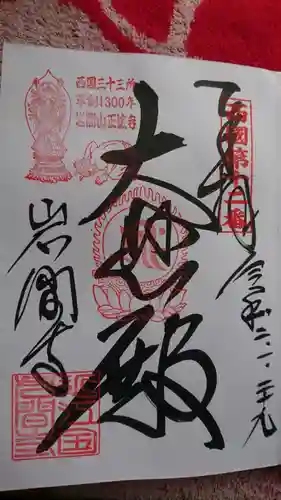 西国第十二番
奉拝
令和二・一・二十九
大悲殿
西国三十三所
草創1300年
岩間山正法寺
岩間寺